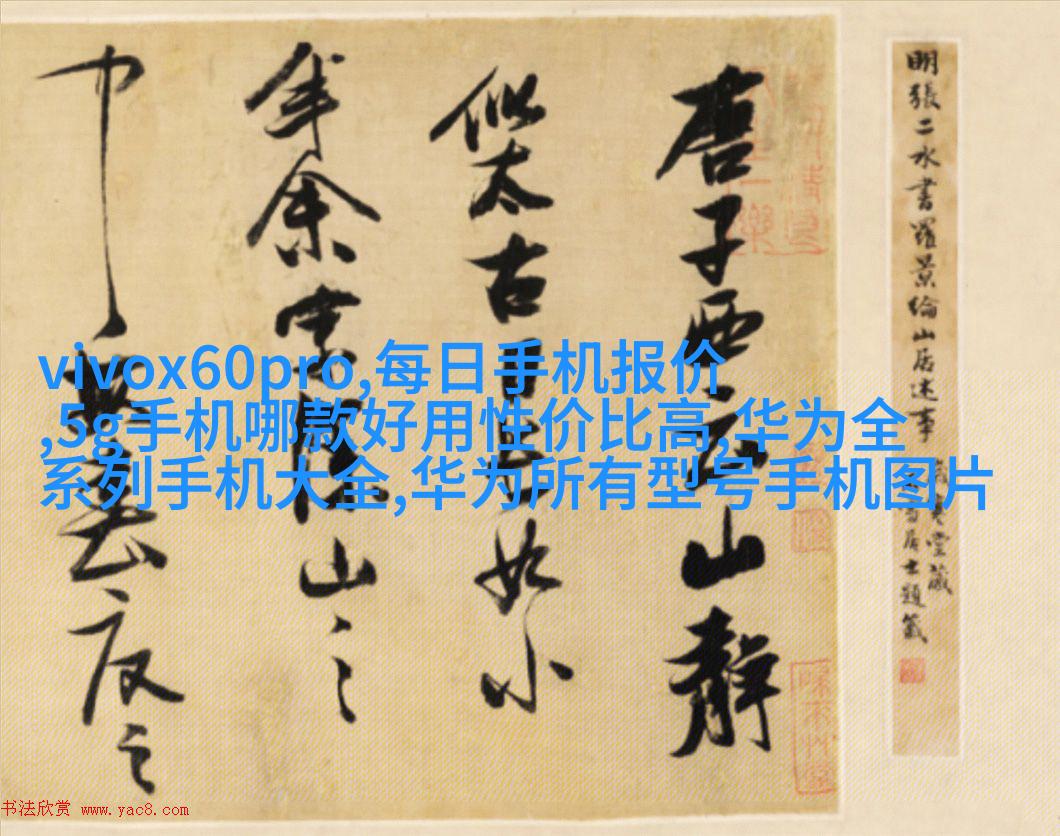 明張二水書羅景綸山居述事
堂藏
居士題籤
唐子西云山靜
似太古日長如小
年余家深山之
中每春夏之
vivox60pro,每日手机报价
,5g手机哪款好用性价比高,华为全
系列手机大全,华为所有型号手机图片
书法欣赏 www.yac8.com